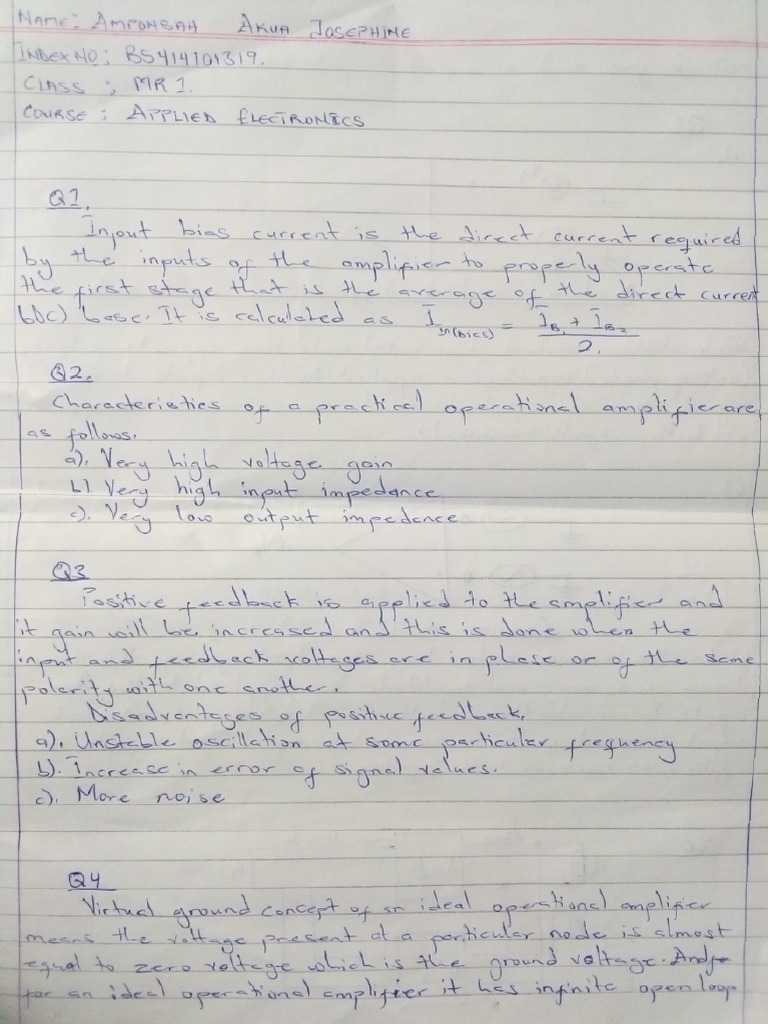 NAME: AMPONSAH AKUA JOSEPHINE
INDEX NO: BS414101319.
CLASS : MR 1.
COURSE : APPLIED ELECTRONICS
Q1.
Input bias current is the direct current required
by the inputs of the amplifier to properly operate
the first stage that is the average of the direct current
(DC) base. It is calculated as I in(bias) = I B1 + I B2
2.
Q2.
Characteristics of a practical operational amplifier are
as follows.
a). Very high voltage gain
b) Very high input impedance
c). Very low output impedence
Q3
Positive feedback is applied to the amplifier and
it gain will be increased and this is done when the
input and feedback voltages are in phase or of the same
polarity with one another.
Disadvantages of positive feedback.
a). Unstable oscillation at some particular frequency
b). Increase in error of signal values.
c). More noise
Q4
Virtual ground concept of an ideal operational amplifier
means the voltage present at a particular node is almost
equal to zero voltage which is the ground voltage. And
for an ideal operational amplifier it has infinite open loop